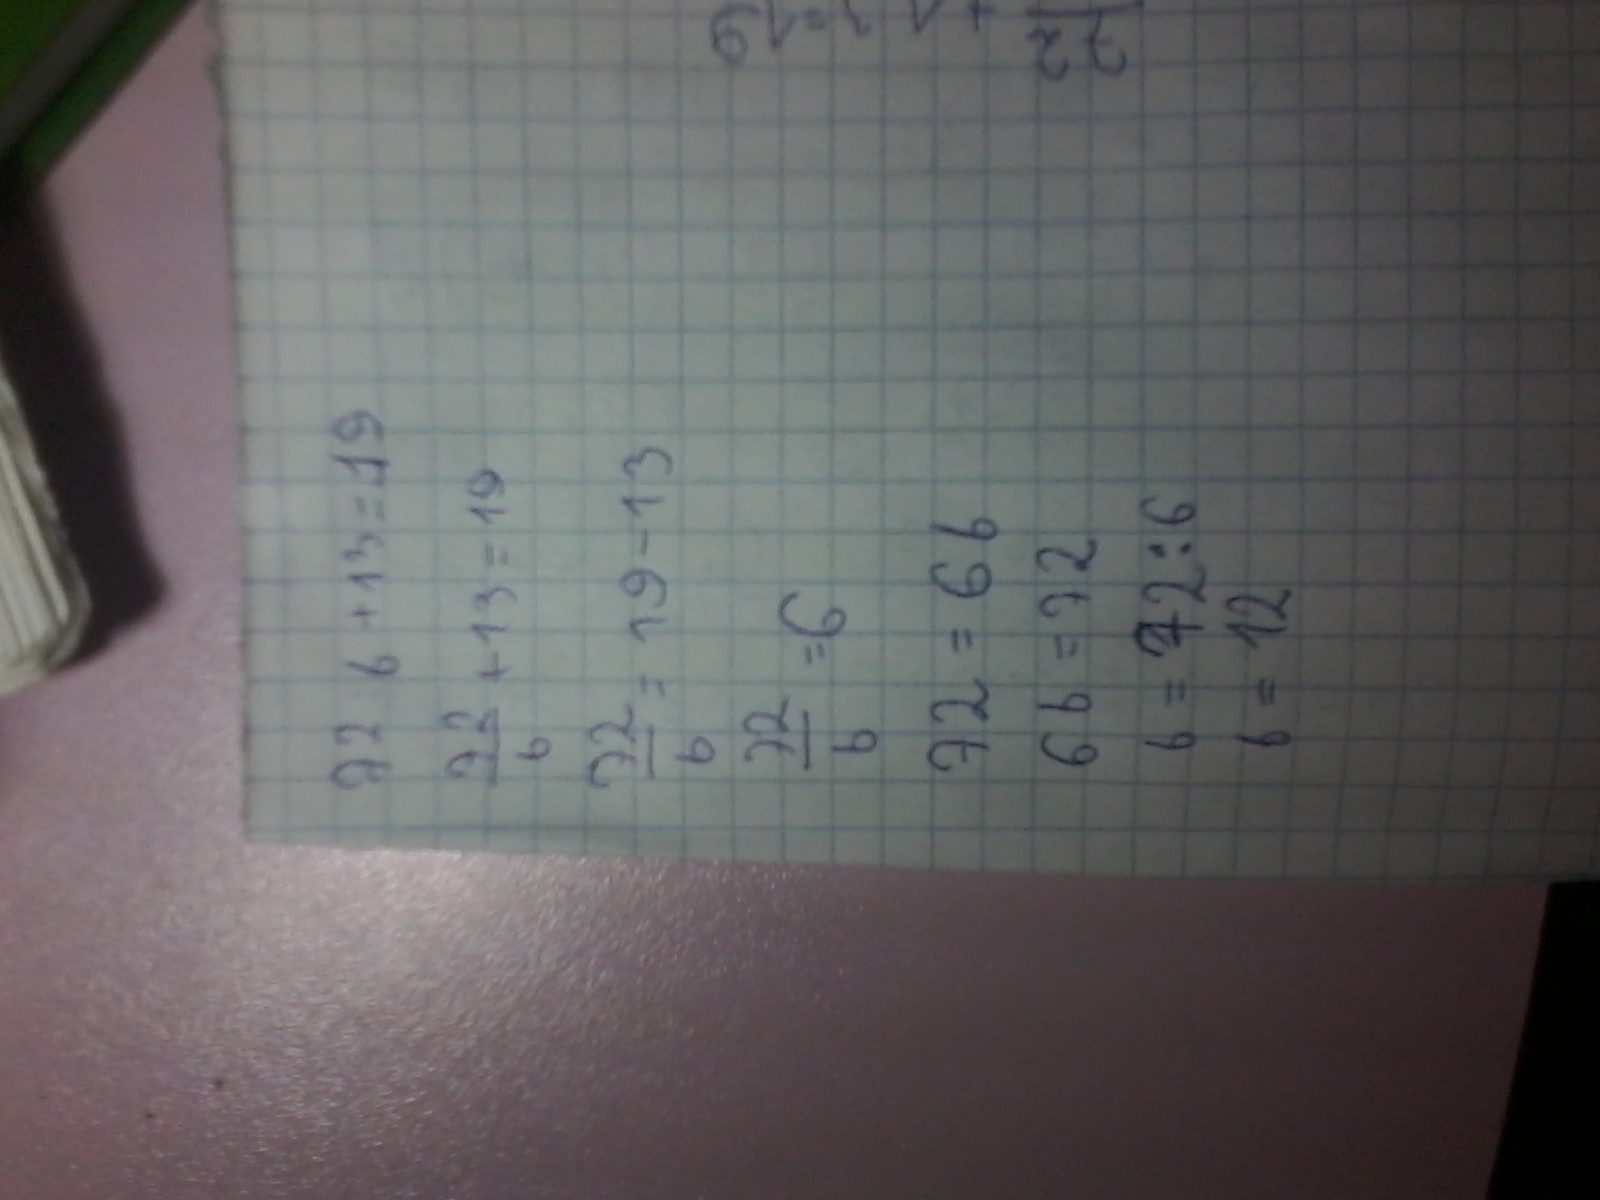 72 b +13=19
72/b +13=19
72/b = 19-13
72/b =6
72 = 6b
6b =72
b = 72:6
b = 12